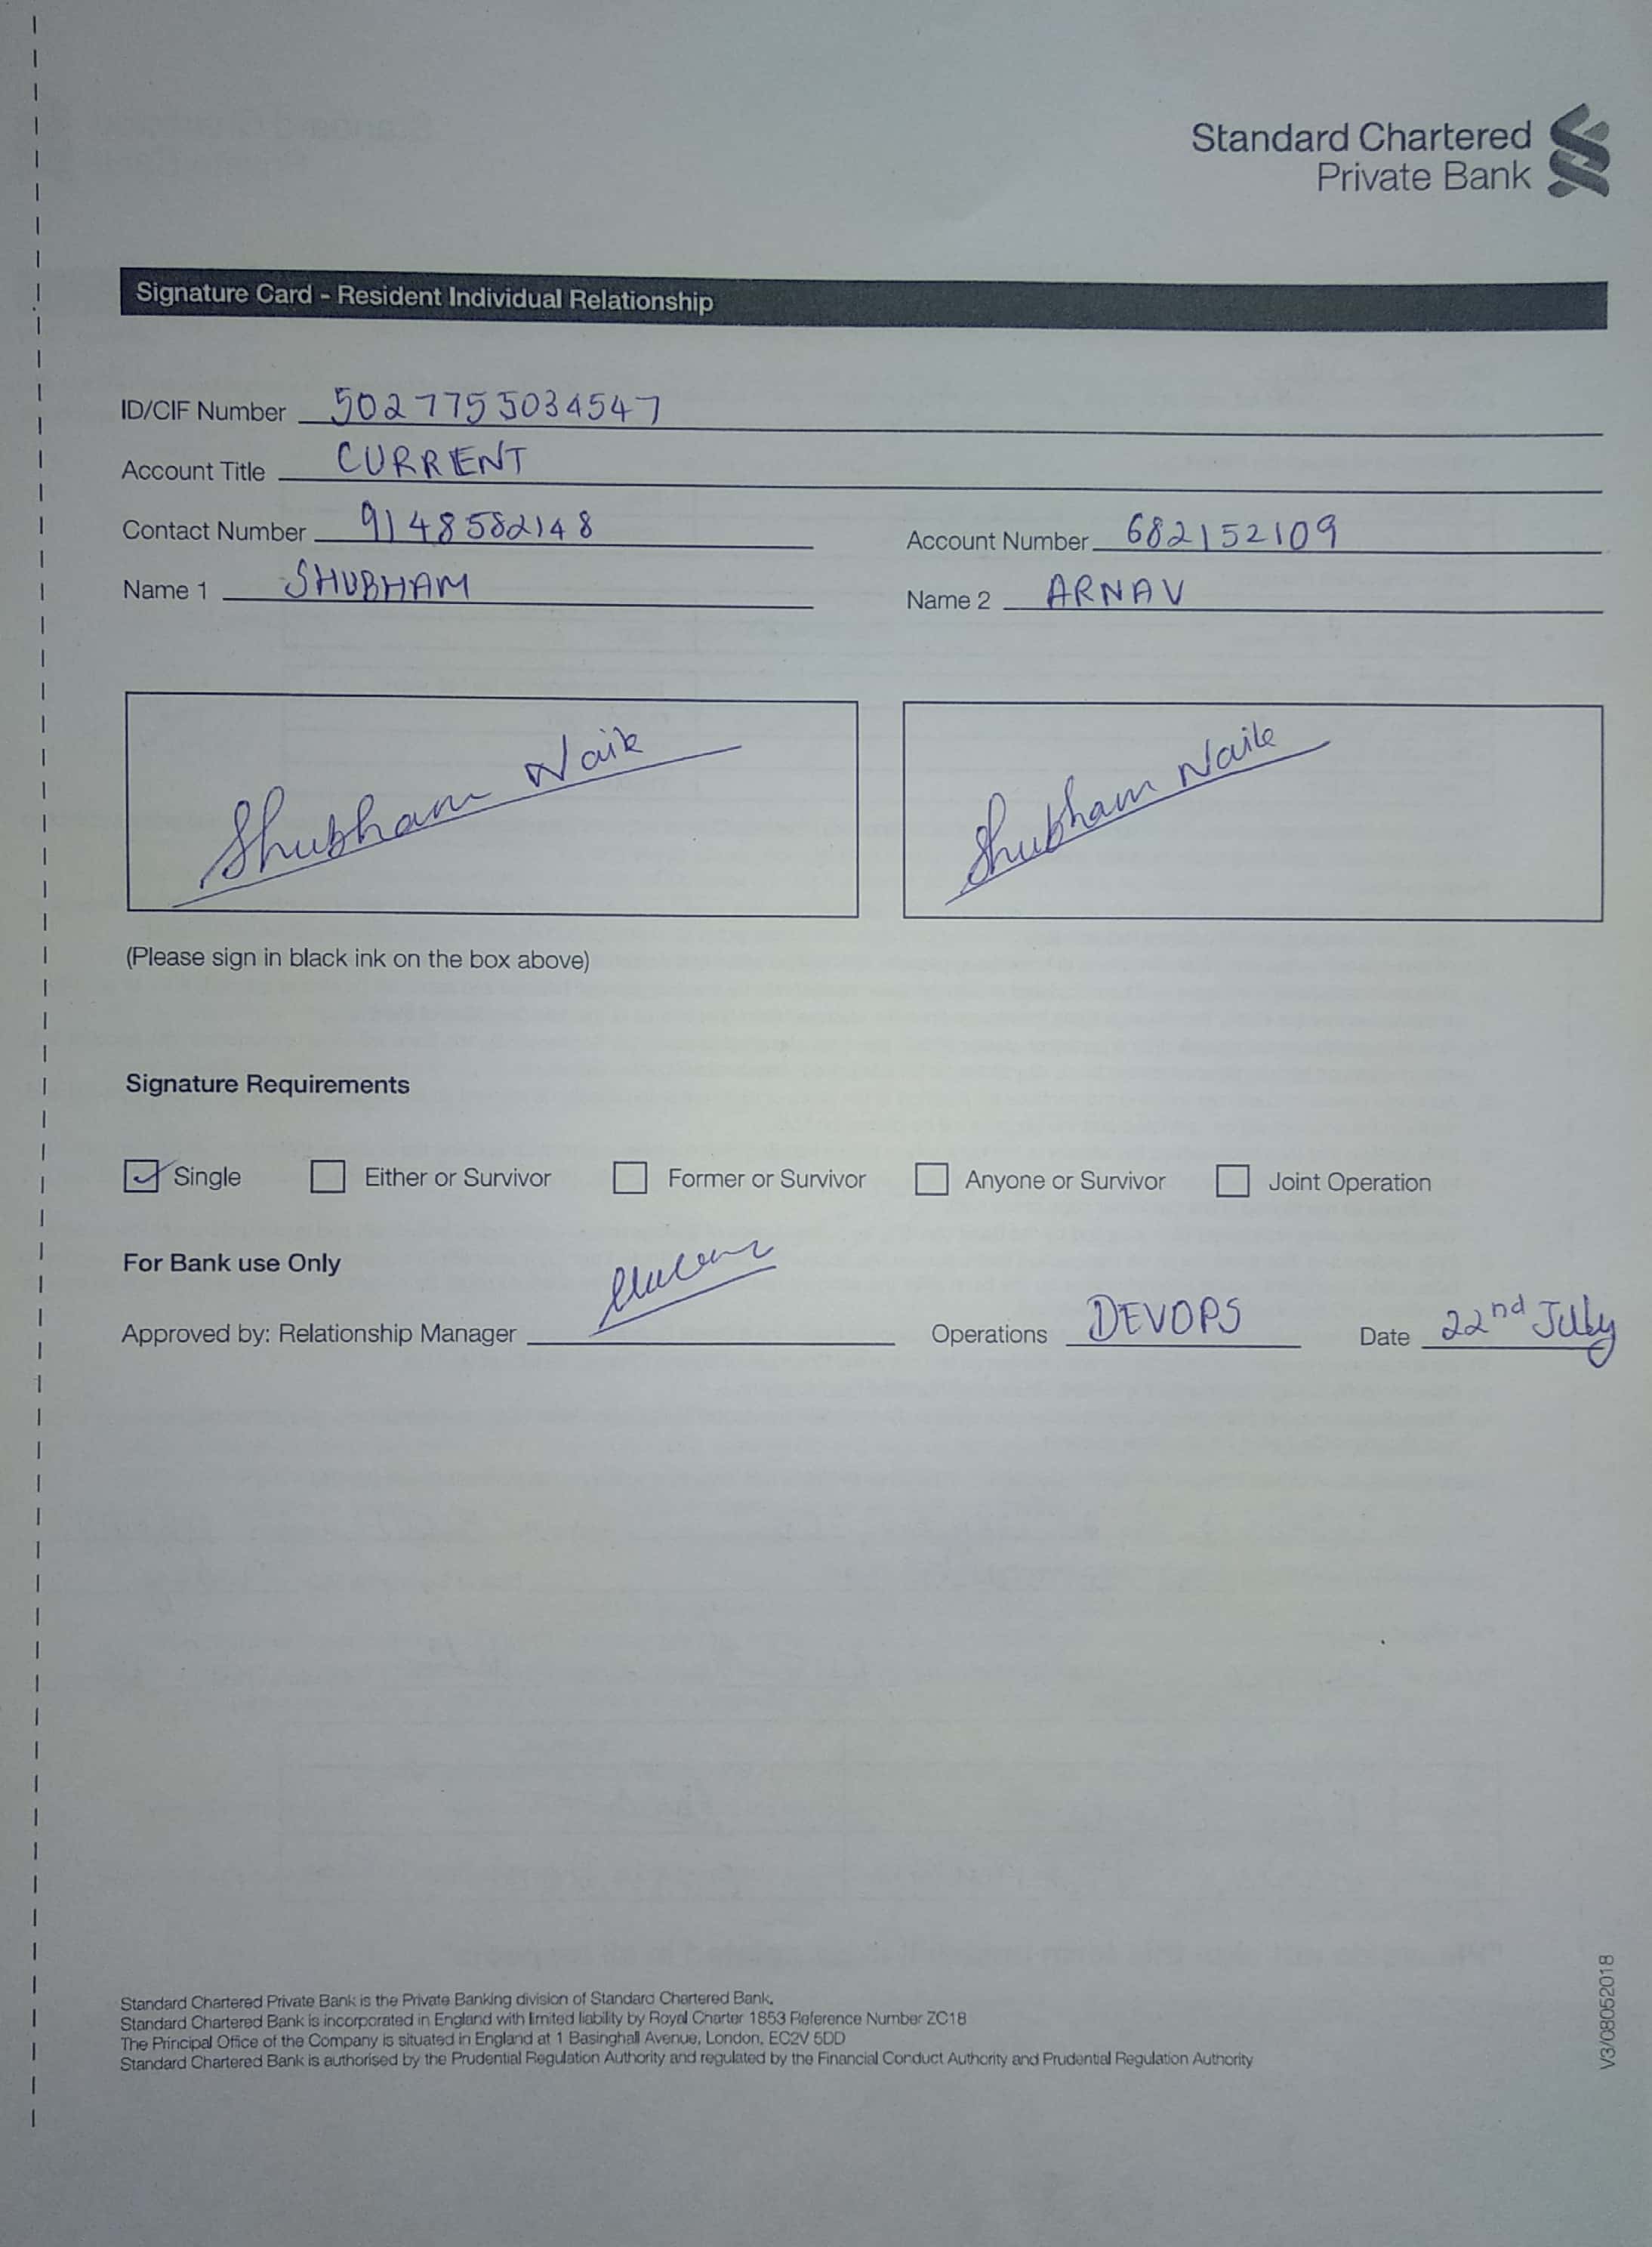 Standard Chartered
Private Bank
Signature Card - Resident Individual Relationship
ID/CIF Number 5027755034547
Account Title CURRENT
Contact Number 9148582148 Account Number 682152109
Name 1 SHUBHAM Name 2 ARNAV
Shubham Naik Shubham Naik
(Please sign in black ink on the box above)
Signature Requirements
Single Either or Survivor Former or Survivor Anyone or Survivor Joint Operation
For Bank use Only
Approved by: Relationship Manager Operations DEVOPS Date 22nd July
Standard Chartered Private Bank is the Private Banking division of Standard Chartered Bank.
Standard Chartered Bank is incorporated in England with limited liability by Royal Charter 1853 Reference Number ZC18
The Principal Office of the Company is situated in England at 1 Basinghall Avenue, London, EC2V 5DD
Standard Chartered Bank is authorised by the Prudential Regulation Authority and regulated by the Financial Conduct Authority and Prudential Regulation Authority
V3/08052018